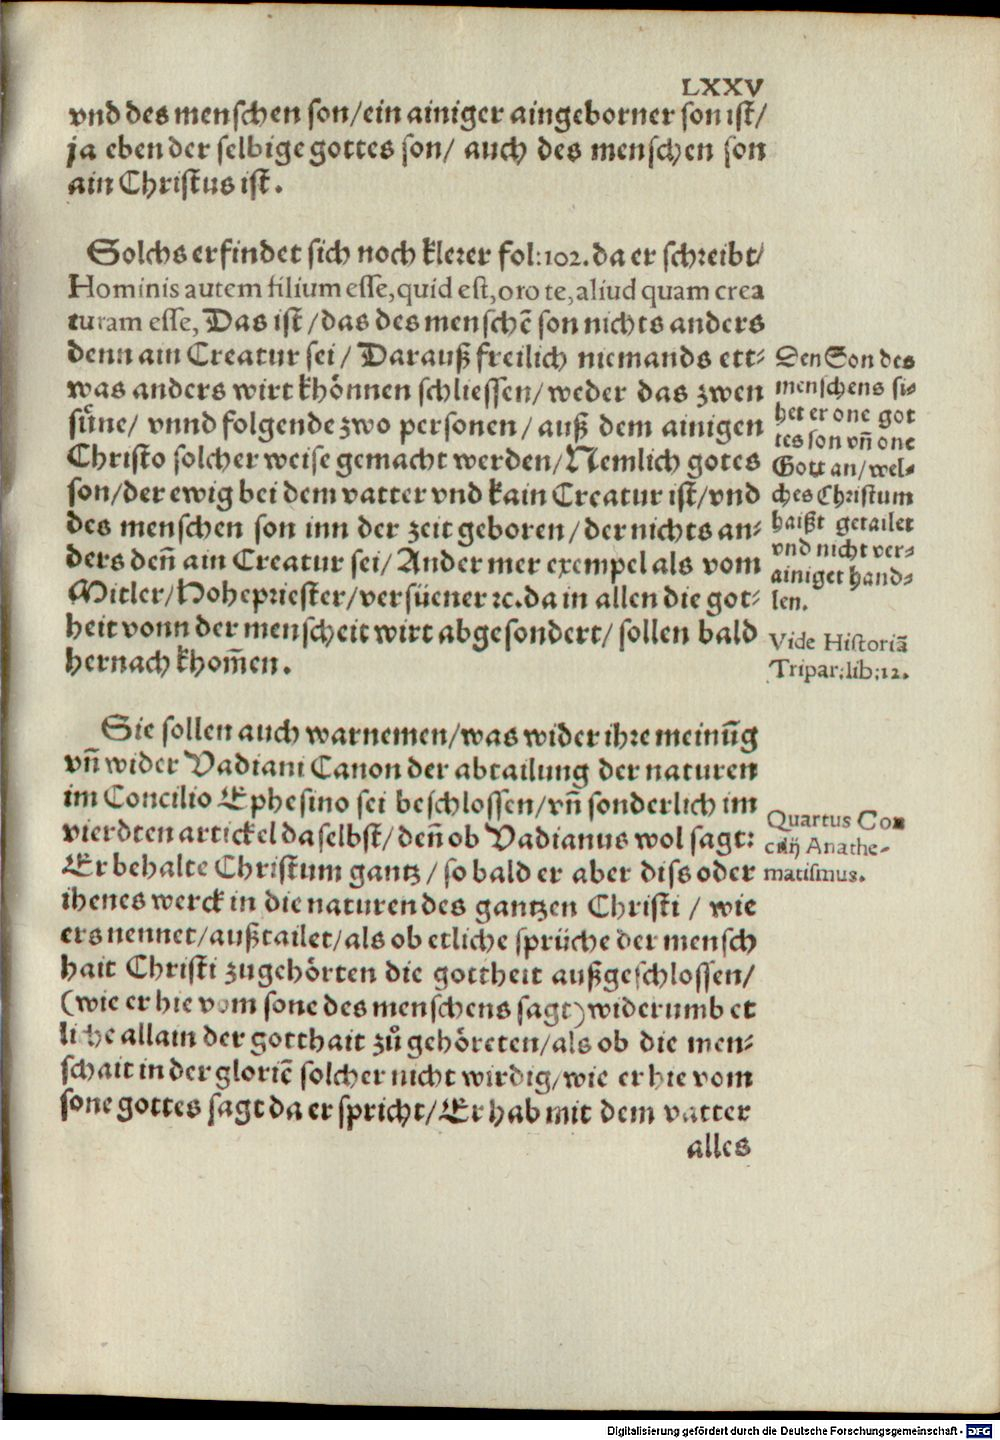 LXXV
vnd des menschen son/ein ainiger aingeborner son ist/
ja eben der selbige gottes son/ auch des menschen son
ain Christus ist.
Solchs erfindet sich noch klerer fol:102. da er schreibt/
Hominis autem filium esse, quid est, oro te, aliud quam crea
turam esse, Das ist/das des menschẽ son nichts anders
denn ain Creatur sei/ Darauß freilich niemands ett-
was anders wirt khönnen schliessen/weder das zwen
süne/ vnnd folgende zwo personen/ auß dem ainigen
Christo solcher weise gemacht werden/Nemlich gotes
son/der ewig bei dem vatter vnd kain Creatur ist/vnd
des menschen son inn der zeit geboren/der nichts an-
ders deñ ain Creatur sei/Ander mer exempel als vom
Mitler/Hohepriester/versüener ꝛc. da in allen die got-
heit vonn der menscheit wirt abgesondert/ sollen bald
hernach khom̃en.
Den Son des
menschens si-
het er one got
tes son vñ one
Gott an/wel-
ches Christum
haißt getailet
vnd nicht ver-
ainiget hand-
len.
Vide Historiã
Tripar:lib:12.
Sie sollen auch warnemen/was wider ihre meinũg
vñ wider Vadiani Canon der abtailung der naturen
im Concilio Ephesino sei beschlossen/vñ sonderlich im
vierdten artickel daselbst/deñ ob Vadianus wol sagt:
Er behalte Christum gantz/so bald er aber diss oder
ihenes werck in die naturen des gantzen Christi / wie
ers nennet/außtailet/als ob etliche sprüche der mensch
hait Christi zugehörten die gottheit außgeschlossen/
(wie er hie vom sone des menschens sagt) widerumb et
liche allain der gotthait zů gehöreten/als ob die men-
schait in der gloriẽ solcher nicht wirdig/wie er hie vom
sone gottes sagt da er spricht/Er hab mit dem vatter
alles
Quartus Con
cilij Anathe-
matismus.
Digitalisierung gefördert durch die Deutsche Forschungsgemeinschaft - DFG